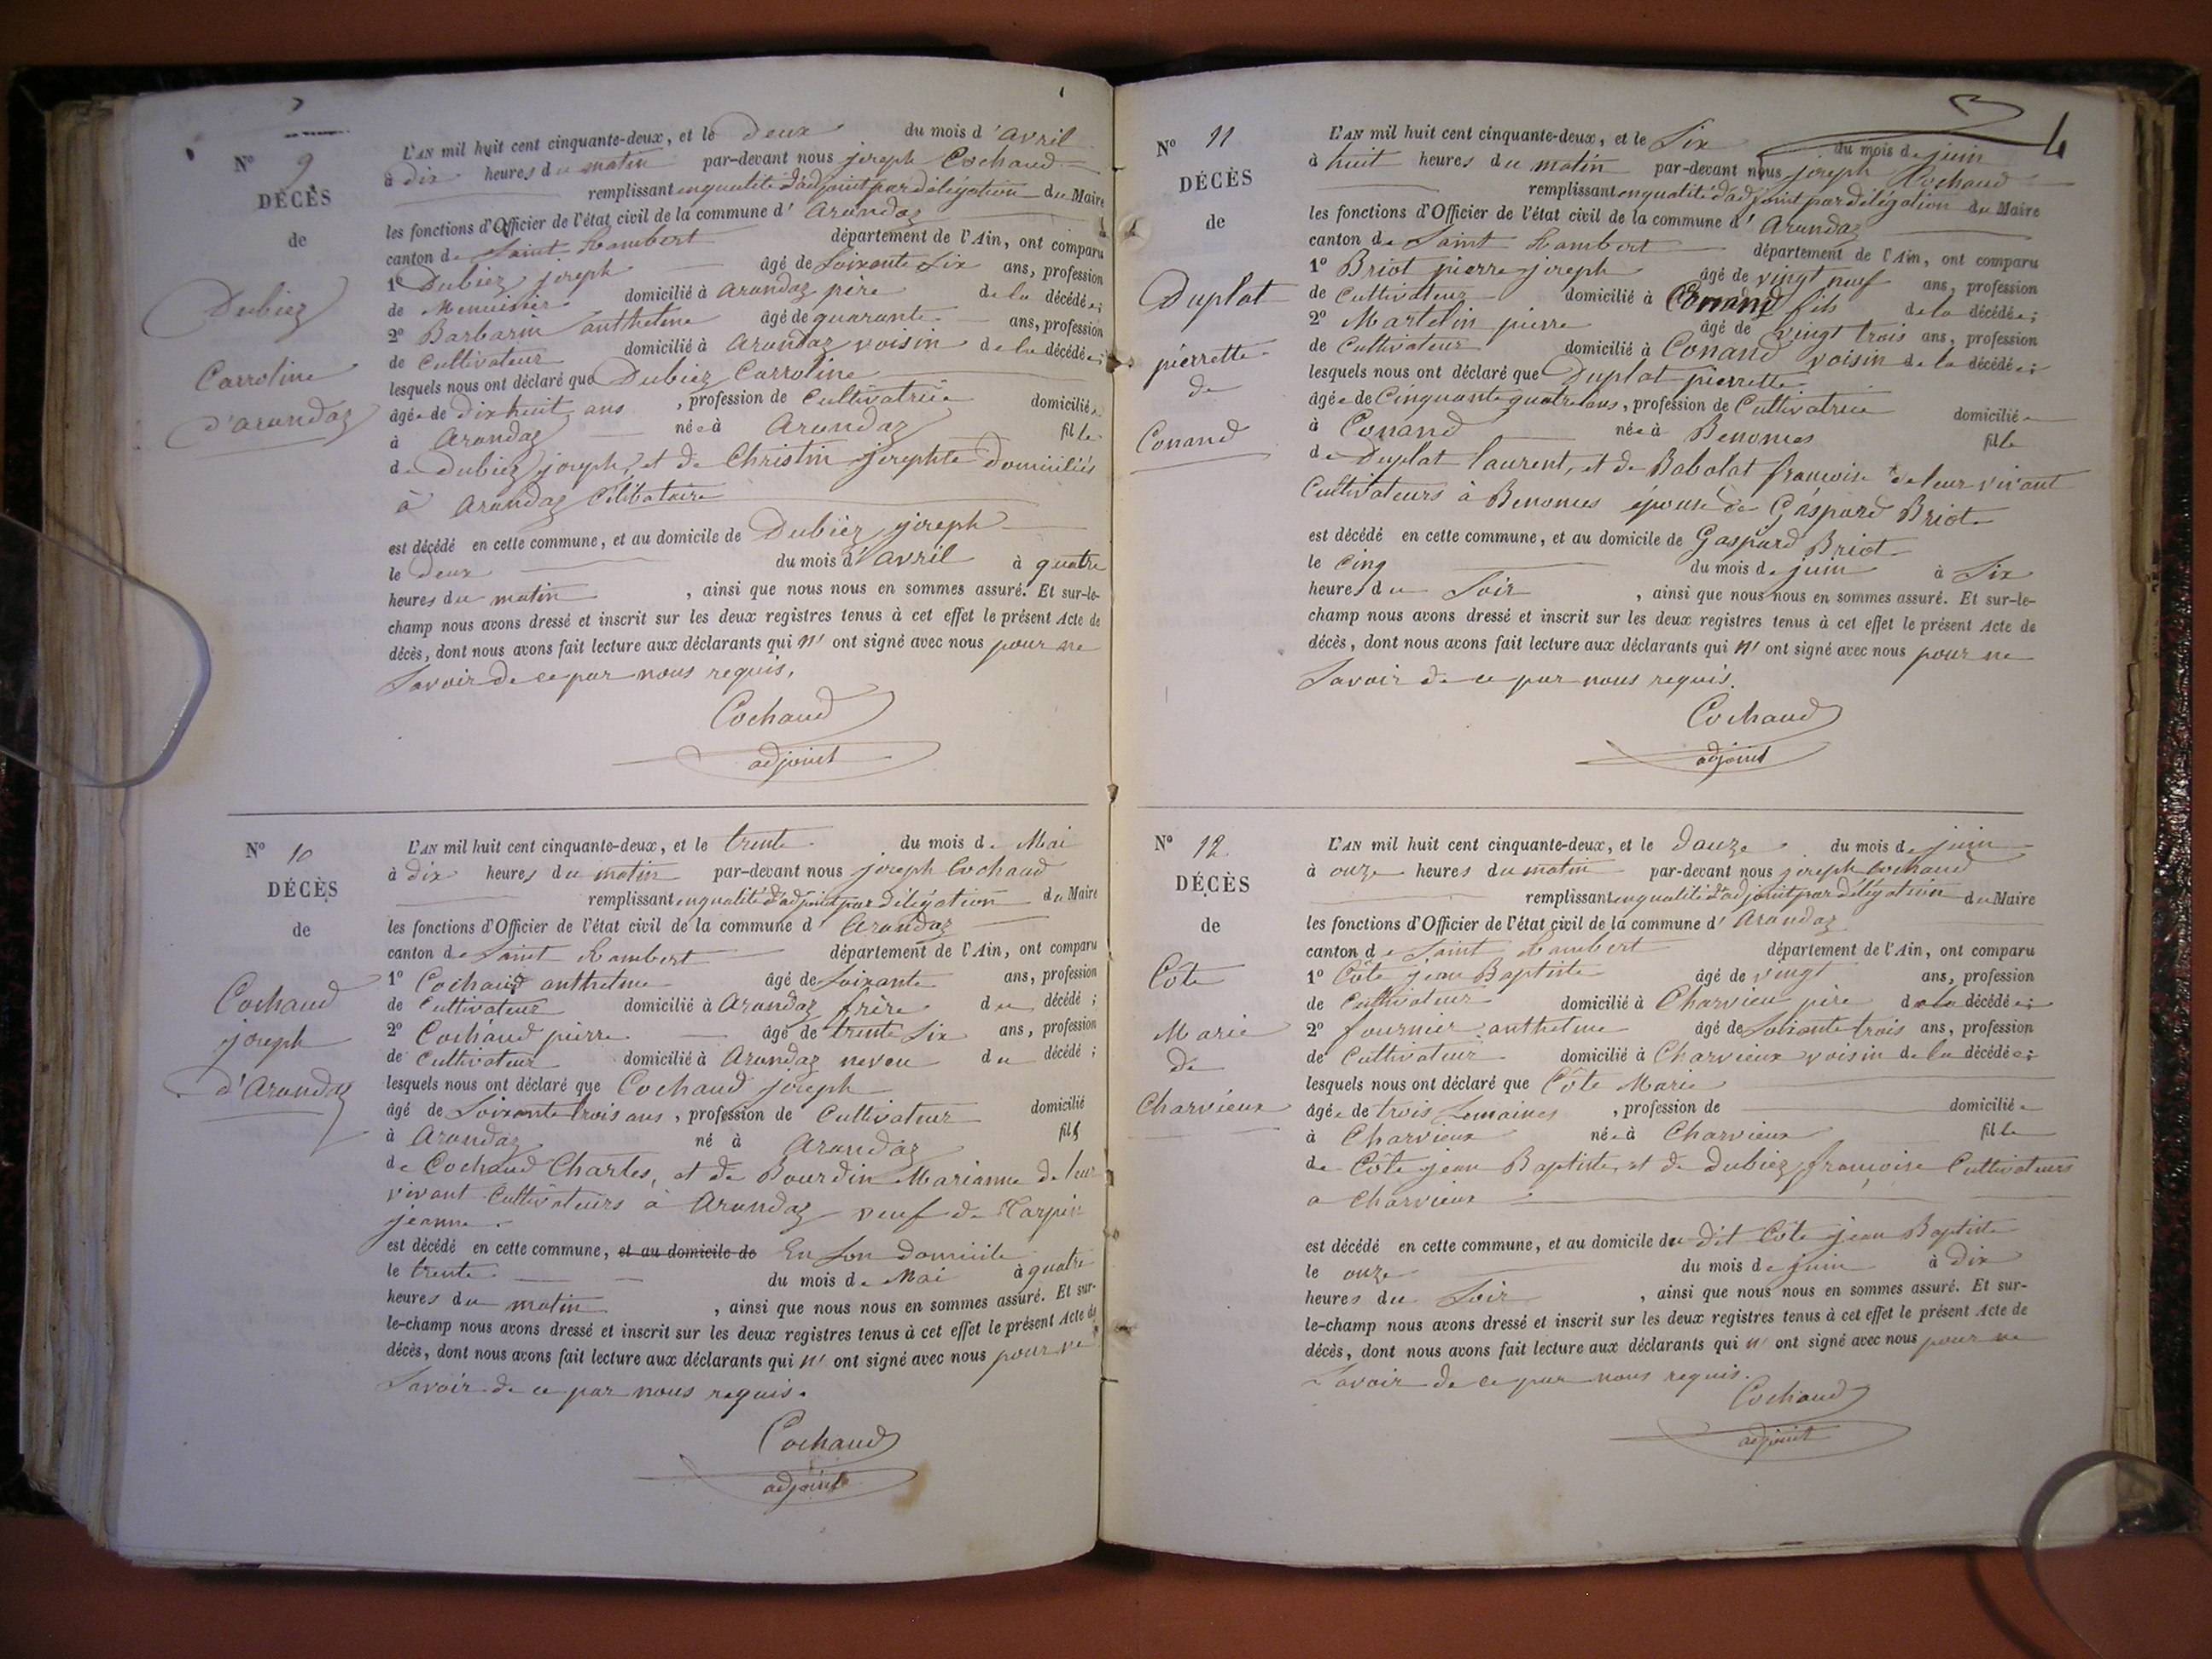 N° 9
DÉCÈS
de
Dubiez
Carroline
d'arandaz
L'AN mil huit cent cinquante-deux, et le deux du mois d'avril
à dix heures du matin par-devant nous joseph Cochaud
remplissant en qualité d'adjoint par délégation du Maire
les fonctions d'Officier de l'état civil de la commune d' Arandaz
canton de Saint Rambert département de l'Ain, ont comparu
1° Dubiez joseph âgé de Soixante Six ans, profession
de Menuisier domicilié à arandaz père de la décédée;
2° Barbarin anthelme âgé de quarante ans, profession
de Cultivateur domicilié à Arandaz voisin de la décédée;
lesquels nous ont déclaré que Dubiez Carroline
âgée de dix huit ans, profession de Cultivatrice domiciliée
à Arandaz née à Arandaz fille
de Dubiez joseph, et de Christin josephte Domiciliés
à Arandaz Célibataire
est décédé en cette commune, et au domicile de Dubiez joseph
le deux du mois d'avril à quatre
heures du matin, ainsi que nous nous en sommes assuré. Et sur-le-
champ nous avons dressé et inscrit sur les deux registres tenus à cet effet le présent Acte de
décès, dont nous avons fait lecture aux déclarants qui n'ont signé avec nous pour ne
Savoir de ce par nous requis.
Cochaud
adjoint
N° 10
DÉCÈS
de
Cochaud
joseph
d'Arandaz
L'AN mil huit cent cinquante-deux, et le trente du mois de Mai
à dix heures du matin par-devant nous joseph Cochaud
remplissant en qualité d'adjoint par délégation du Maire
les fonctions d'Officier de l'état civil de la commune d' Arandaz
canton de Saint Rambert département de l'Ain, ont comparu
1° Cochaud anthelme âgé de Soixante ans, profession
de Cultivateur domicilié à Arandaz frère du décédé;
2° Cochaud pierre âgé de trente Six ans, profession
de Cultivateur domicilié à Arandaz neveu du décédé;
lesquels nous ont déclaré que Cochaud joseph
âgé de Soixante trois ans, profession de Cultivateur domicilié
à Arandaz né à Arandaz fils
de Cochaud Charles, et de Bourdin Marianne de leur
vivant Cultivateurs à Arandaz veuf de Carpin
jeanne.
est décédé en cette commune, et au domicile de En Son domicile
le trente du mois de Mai à quatre
heures du matin, ainsi que nous nous en sommes assuré. Et sur-
le-champ nous avons dressé et inscrit sur les deux registres tenus à cet effet le présent Acte de
décès, dont nous avons fait lecture aux déclarants qui n'ont signé avec nous pour ne
Savoir de ce par nous requis.
Cochaud
adjoint
4
N° 11
DÉCÈS
de
Duplat
pierrette
de
Conand
L'AN mil huit cent cinquante-deux, et le Six du mois de juin
à huit heures du matin par-devant nous joseph Cochaud
remplissant en qualité d'adjoint par délégation du Maire
les fonctions d'Officier de l'état civil de la commune d' Arandaz
canton de Saint Rambert département de l'Ain, ont comparu
1° Briot pierre joseph âgé de vingt neuf ans, profession
de Cultivateur domicilié à Conand fils de la décédée;
2° Martelin pierre âgé de vingt trois ans, profession
de Cultivateur domicilié à Conand voisin de la décédée;
lesquels nous ont déclaré que Duplat pierrette
âgée de Cinquante quatre ans, profession de Cultivatrice domiciliée
à Conand née à Benonces fille
de Duplat laurent, et de Babolat francoise de leur vivant
Cultivateurs à Benonces épouse de Gaspard Briot
est décédé en cette commune, et au domicile de Gaspard Briot
le Cinq du mois de juin à Six
heures du Soir, ainsi que nous nous en sommes assuré. Et sur-le-
champ nous avons dressé et inscrit sur les deux registres tenus à cet effet le présent Acte de
décès, dont nous avons fait lecture aux déclarants qui n'ont signé avec nous pour ne
Savoir de ce par nous requis.
Cochaud
adjoint
N° 12
DÉCÈS
de
Côte
Marie
de
Charvieux
L'AN mil huit cent cinquante-deux, et le Douze du mois de juin
à onze heures du matin par-devant nous joseph Cochaud
remplissant en qualité d'adjoint par délégation du Maire
les fonctions d'Officier de l'état civil de la commune d' Arandaz
canton de Saint Rambert département de l'Ain, ont comparu
1° Côte jean Baptiste âgé de vingt ans, profession
de Cultivateur domicilié à Charvieu père de la décédée;
2° fournier anthelme âgé de Soixante trois ans, profession
de Cultivateur domicilié à Charvieux voisin de la décédée;
lesquels nous ont déclaré que Côte Marie
âgée de trois Semaines, profession de domiciliée
à Charvieux née à Charvieux fille
de Côte jean Baptiste, et de Dubiez francoise Cultivateurs
a Charvieux
est décédé en cette commune, et au domicile du dit Côte jean Baptiste
le onze du mois de juin à dix
heures du Soir, ainsi que nous nous en sommes assuré. Et sur-
le-champ nous avons dressé et inscrit sur les deux registres tenus à cet effet le présent Acte de
décès, dont nous avons fait lecture aux déclarants qui n'ont signé avec nous pour ne
Savoir de ce par nous requis.
Cochaud
adjoint